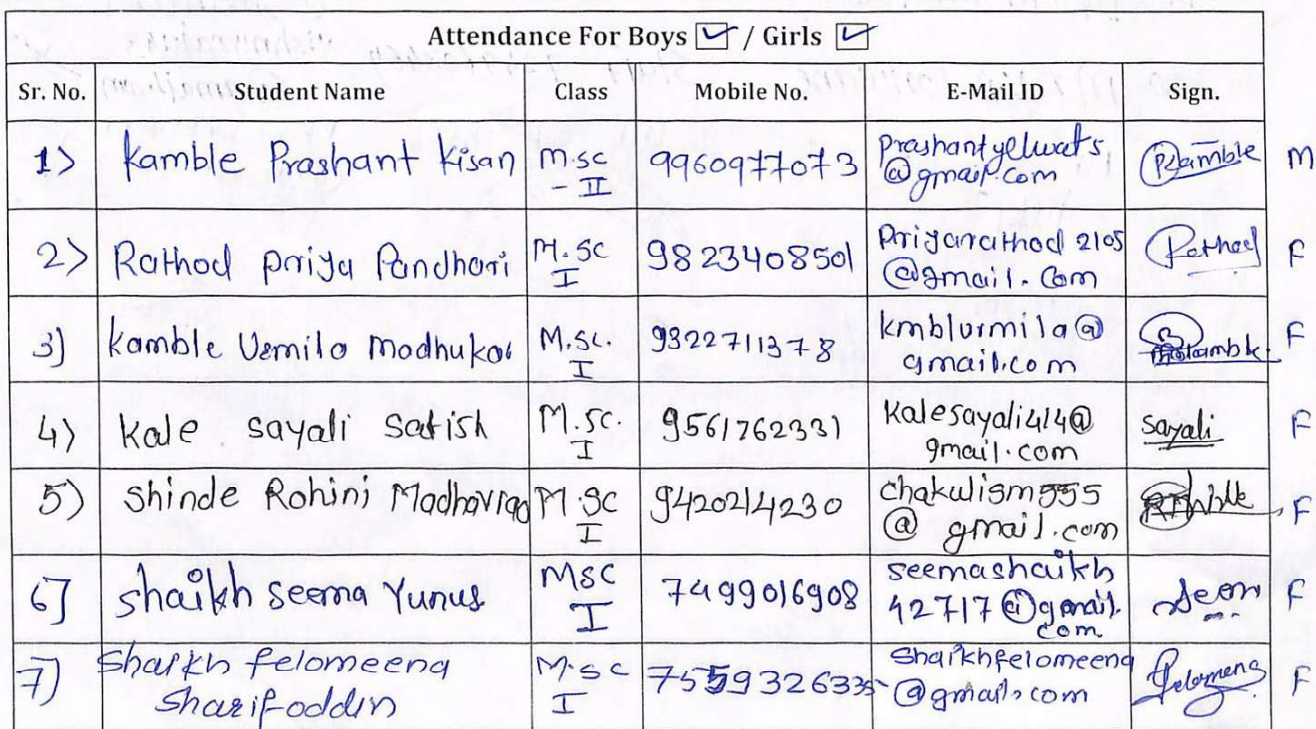 Attendance For Boys ☑ / Girls ☑
Sr. No. Student Name Class Mobile No. E-Mail ID Sign.
1> Kamble Prashant Kisan M.sc - II 9960977073 Prashantyelwats @gmail.com Pkamble M
2> Rathod priya Pandhari M.SC I 9823408501 Priyarathod 2105 @gmail.com Rathod F
3) Kamble Urmila Madhukar M.SC. I 9322711378 kmblurmila@ gmail.com F
4) Kale sayali Satish M.SC. I 9561762331 Kalesayali414@ gmail.com Sayali F
5) Shinde Rohini Madhavrao M.SC I 9420214230 chakulism555 @ gmail.com F
6] Shaikh Seema Yunus MSC I 7499016908 seemashaikh 42717@gmail.com Seem F
7) Shaikh felomeena Sharifoddin M.SC I 7559326335 Shaikhfelomeena @gmail.com Felomena F